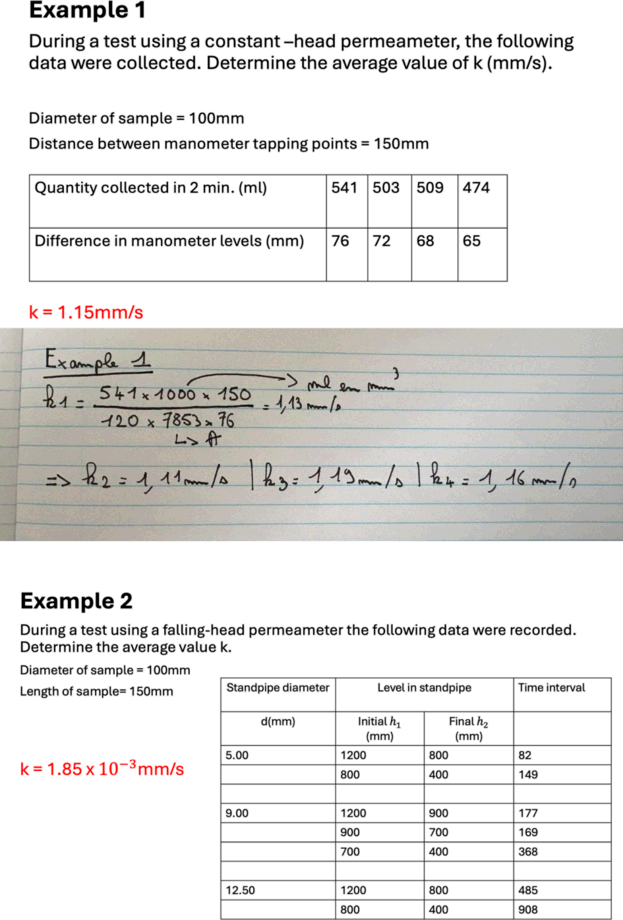 Example 1
During a test using a constant –head permeameter, the following
data were collected. Determine the average value of k (mm/s).
Diameter of sample = 100mm
Distance between manometer tapping points = 150mm
Quantity collected in 2 min. (ml) 541 503 509 474
Difference in manometer levels (mm) 76 72 68 65
k = 1.15mm/s
Example 1
k1 = 541 x 1000 x 150 / 120 x 7853 x 76 = 1,13 mm/s
-> ml en mm³
↳> A
=> k2 = 1,11 mm/s | k3 = 1,19 mm/s | k4 = 1,16 mm/s
Example 2
During a test using a falling-head permeameter the following data were recorded.
Determine the average value k.
Diameter of sample = 100mm
Length of sample= 150mm
Standpipe diameter Level in standpipe Time interval
d(mm) Initial h₁ (mm) Final h₂ (mm)
5.00 1200 800 82
800 400 149
k = 1.85 x 10⁻³mm/s
9.00 1200 900 177
900 700 169
700 400 368
12.50 1200 800 485
800 400 908